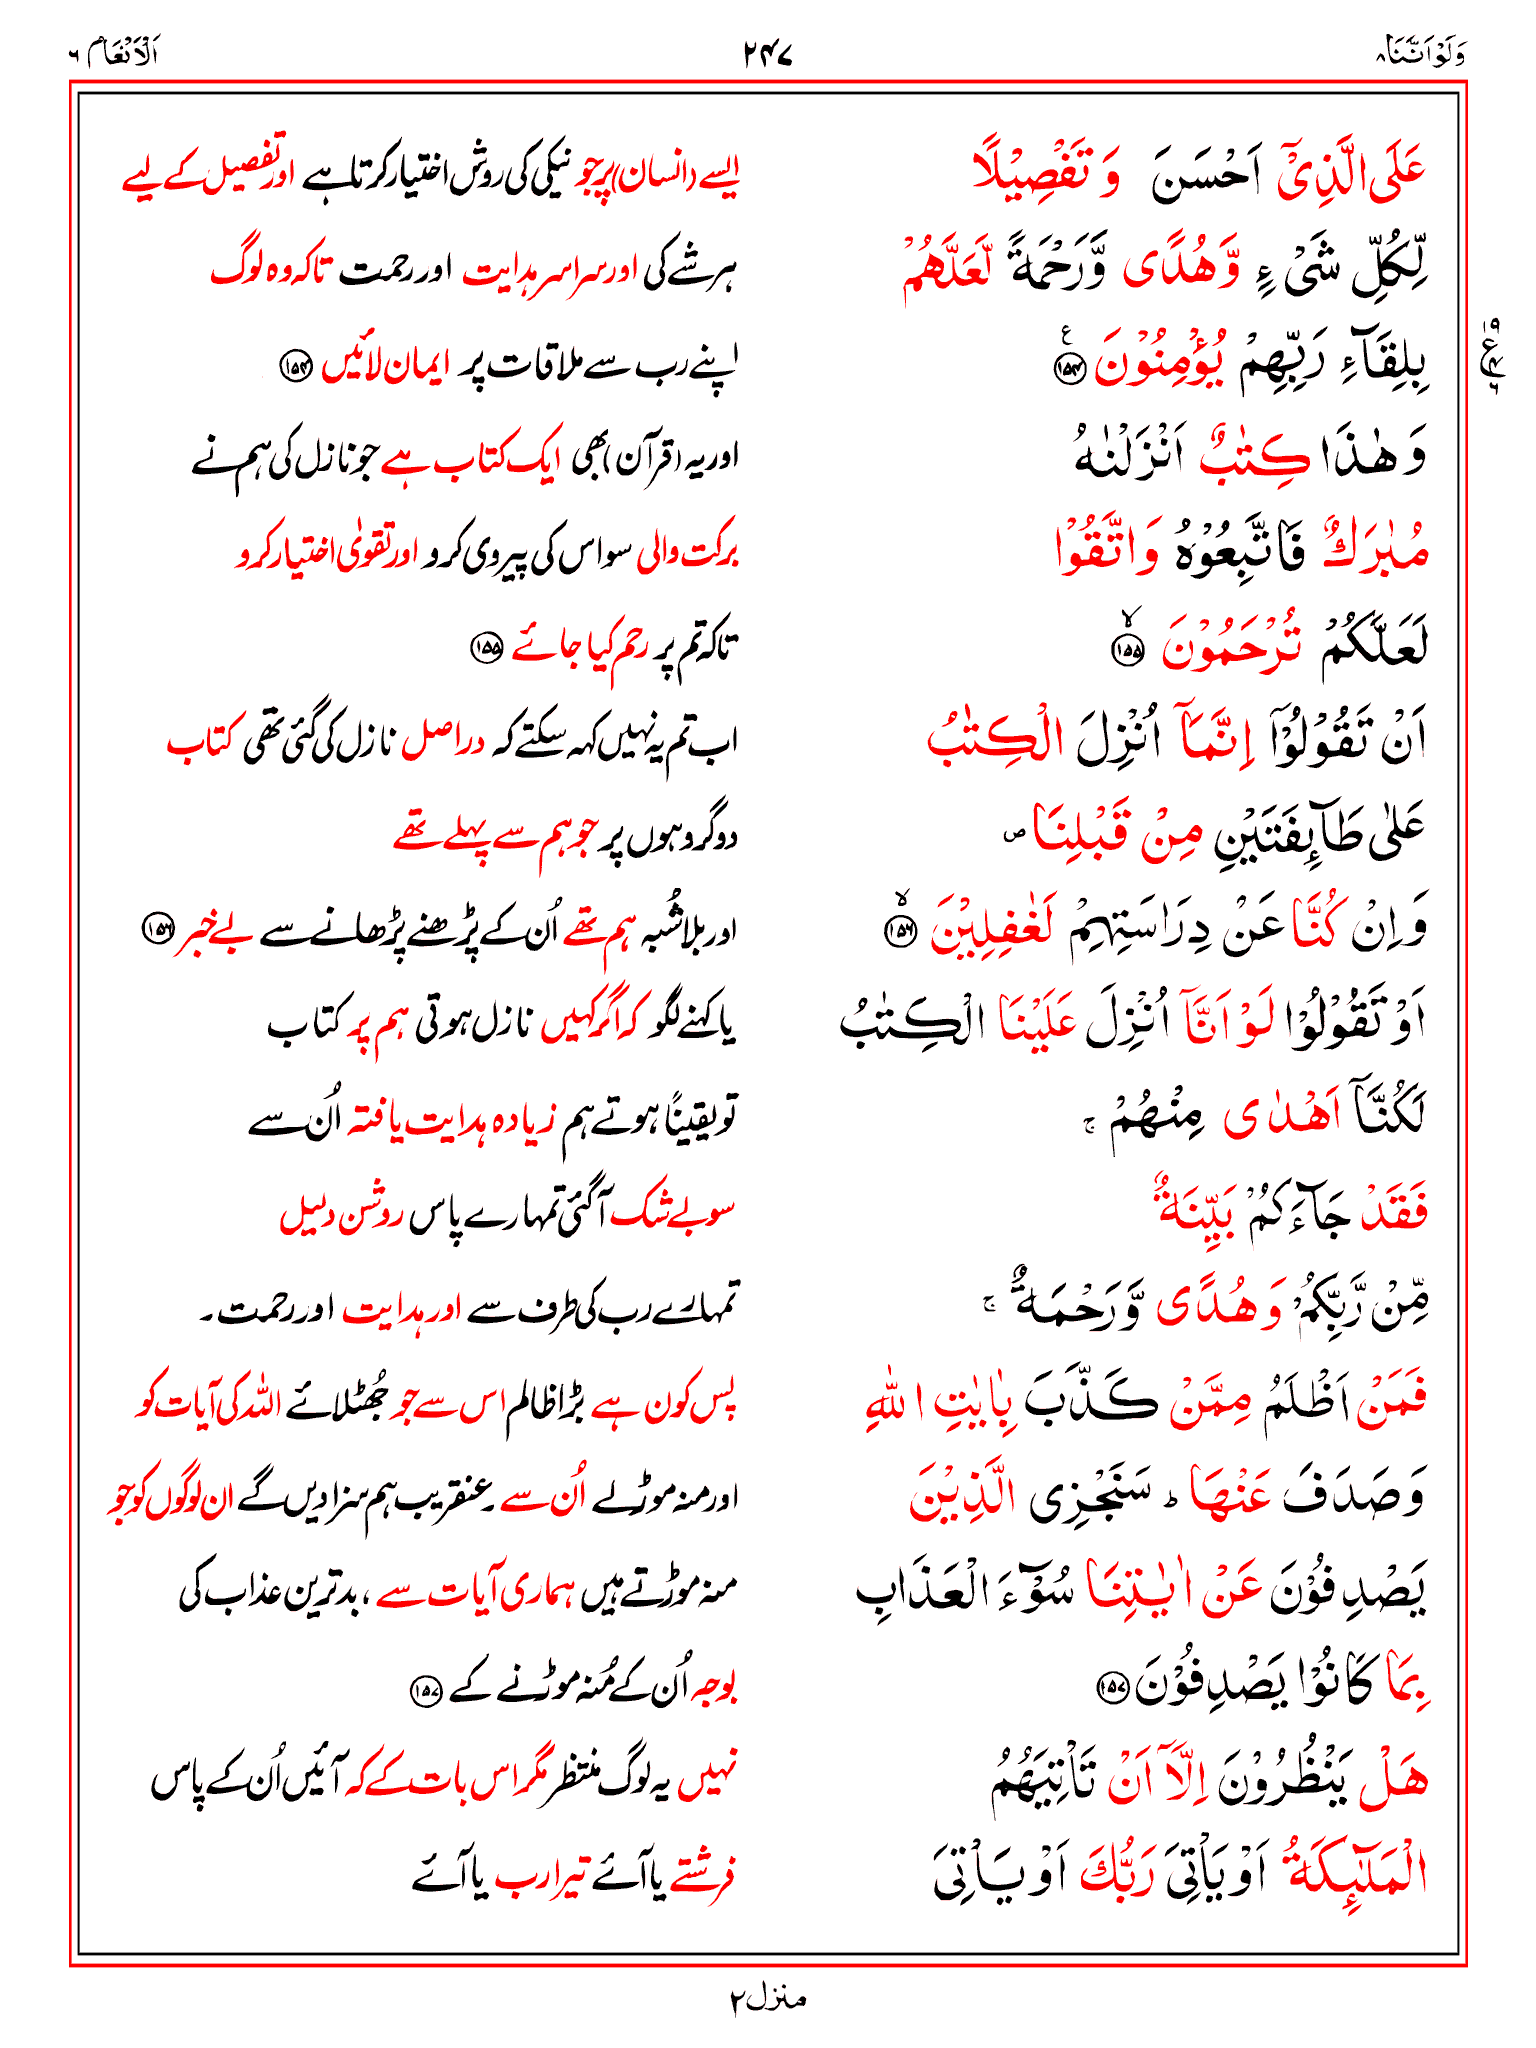 وَلَوْاَنَّنَا ۸
۲۴۷
اَلْاَنْعَام ۶
عَلَى الَّذِیْۤ اَحْسَنَ وَ تَفْصِیْلًا
ایسے (انسان) پر جو نیکی کی روش اختیار کرتا ہے اور تفصیل کے لیے
لِّكُلِّ شَیْءٍ وَّ هُدًی وَّ رَحْمَةً لَّعَلَّهُمْ
ہر شے کی اور سراسر ہدایت اور رحمت تاکہ وہ لوگ
بِلِقَآءِ رَبِّهِمْ یُؤْمِنُوْنَ ۱۵۴ ع
اپنے رب سے ملاقات پر ایمان لائیں ۱۵۴
وَ هٰذَا كِتٰبٌ اَنْزَلْنٰهُ
اور یہ (قرآن) بھی ایک کتاب ہے جو نازل کی ہم نے
مُبٰرَكٌ فَاتَّبِعُوْهُ وَ اتَّقُوْا
برکت والی سو اس کی پیروی کرو اور تقویٰ اختیار کرو
لَعَلَّكُمْ تُرْحَمُوْنَ ۱۵۵ لا
تاکہ تم پر رحم کیا جائے ۱۵۵
اَنْ تَقُوْلُوْۤا اِنَّمَاۤ اُنْزِلَ الْكِتٰبُ
اب تم یہ نہیں کہہ سکتے کہ دراصل نازل کی گئی تھی کتاب
عَلٰی طَآىِٕفَتَیْنِ مِنْ قَبْلِنَا ص
دو گروہوں پر جو ہم سے پہلے تھے
وَ اِنْ كُنَّا عَنْ دِرَاسَتِهِمْ لَغٰفِلِیْنَ ۱۵۶ لا
اور بلاشُبہ ہم تھے اُن کے پڑھنے پڑھانے سے بے خبر ۱۵۶
اَوْ تَقُوْلُوْا لَوْ اَنَّاۤ اُنْزِلَ عَلَیْنَا الْكِتٰبُ
یا کہنے لگو کہ اگر کہیں نازل ہوتی ہم پر کتاب
لَكُنَّاۤ اَهْدٰی مِنْهُمْ ج
تو یقیناً ہوتے ہم زیادہ ہدایت یافتہ اُن سے
فَقَدْ جَآءَكُمْ بَیِّنَةٌ
سو بے شک آ گئی تمہارے پاس روشن دلیل
مِّنْ رَّبِّكُمْ وَ هُدًی وَّ رَحْمَةٌ ج
تمہارے رب کی طرف سے اور ہدایت اور رحمت۔
فَمَنْ اَظْلَمُ مِمَّنْ كَذَّبَ بِاٰیٰتِ اللّٰهِ
پس کون ہے بڑا ظالم اس سے جو جُھٹلائے اللہ کی آیات کو
وَ صَدَفَ عَنْهَا ط سَنَجْزِی الَّذِیْنَ
اور منہ موڑ لے اُن سے۔ عنقریب ہم سزا دیں گے ان لوگوں کو جو
یَصْدِفُوْنَ عَنْ اٰیٰتِنَا سُوْٓءَ الْعَذَابِ
منہ موڑتے ہیں ہماری آیات سے، بدترین عذاب کی
بِمَا كَانُوْا یَصْدِفُوْنَ ۱۵۷
بوجہ اُن کے مُنہ موڑنے کے ۱۵۷
هَلْ یَنْظُرُوْنَ اِلَّاۤ اَنْ تَاْتِیَهُمُ
نہیں یہ لوگ منتظر مگر اس بات کے کہ آئیں اُن کے پاس
الْمَلٰٓىِٕكَةُ اَوْ یَاْتِیَ رَبُّكَ اَوْ یَاْتِیَ
فرشتے یا آئے تیرا رب یا آئے
منزل ۲